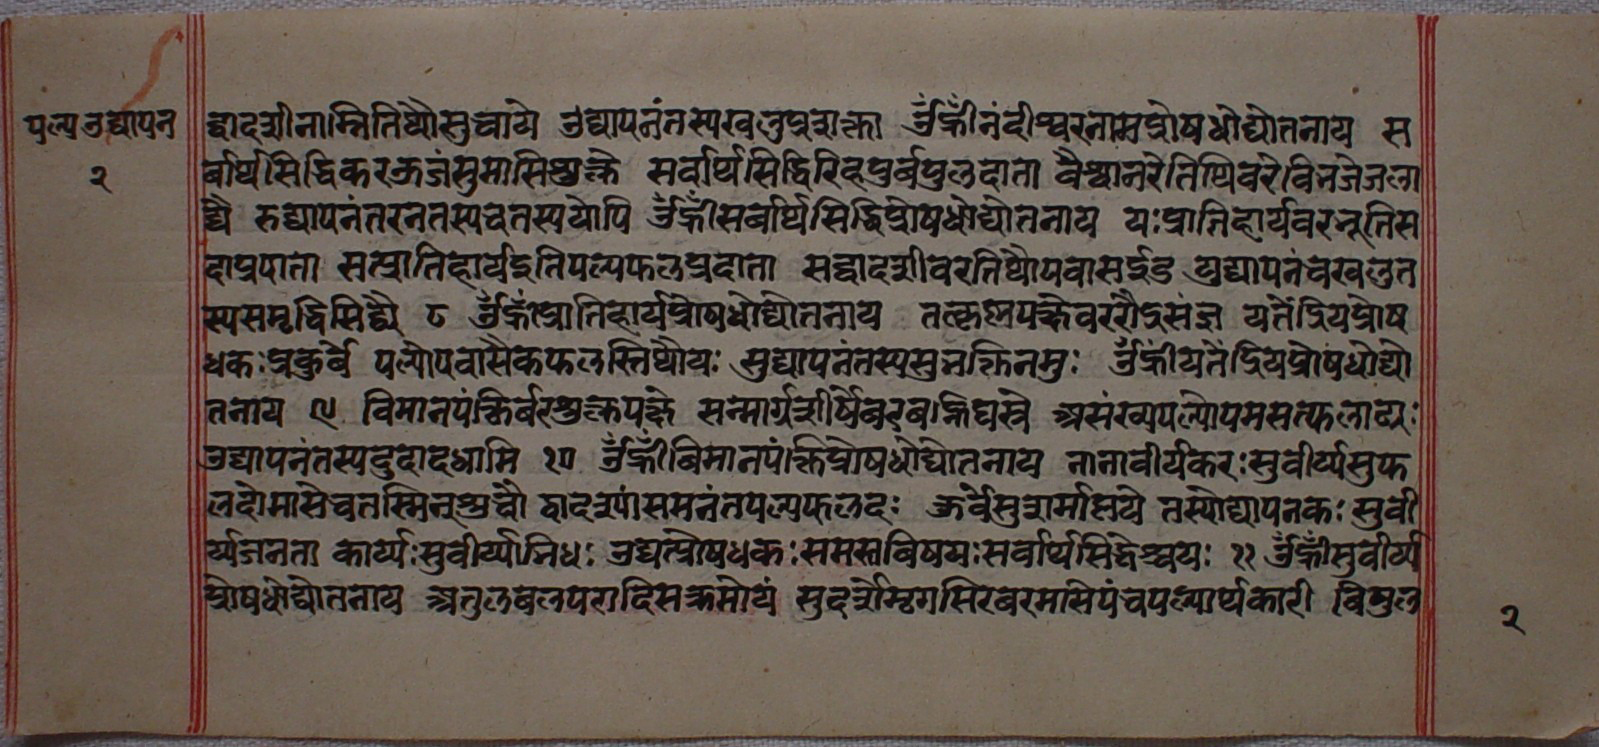 पल्पउद्यापन
२
द्वादशीनाम्नितिथौसुचाये उद्यापनंतस्यखलुप्रशक्त्या ॐह्रीँनंदीश्वरनामप्रोषधोद्योतनाय स
र्वार्थसिद्धिकरऊर्जसुमासिशुक्ले सर्वार्थसिद्धिरिहपुर्वपुलदाता वैश्वानरेतिथिवरेविनजेजला
द्यै रुद्यापनंतरनतस्यचतस्ययोपि ॐह्रीँसर्वार्थसिद्धिप्रोषधोद्योतनाय यःप्रातिहार्यवरनूतिस
दाप्रपाता सत्प्रातिहार्यइतिपल्यफलप्रदाता सद्वादशीवरतिथौ खलुत
स्यसमृद्धिसिद्ध्यै ८ ॐह्रीँप्रातिहार्यप्रोषधोद्योतनाय यतेंद्रियप्रोष
धकःप्रकुर्वे पल्योपवासैकफलस्तिथौयः मुद्यापनंतस्यसु ॐह्रीँयतेंद्रियप्रोषधोद्यो
तनाय ९ विमानपंक्तिर्वरशुक्लपक्षे सन्मार्गशीर्षेवरवह्निघस्रे असंख्यपल्योपमसत्फलाढ्यः
उद्यापनंतस्यदुहादधामि १० ॐह्रीँविमानपंक्तिप्रोषधोद्योतनाय नानावीर्यकरःसुवीर्य्यसुफ
लदोमासेचतस्मिन्शुचौ द्वादश्यांसमनंतपल्यफलदः ऊर्वेसुशर्माप्तये तस्योद्यापनकः सुवी
र्य्यजनता कार्य्यःसुवीर्य्योनिधः उद्यत्प्रोषधकःसमस्तविषयःसर्वार्थसिद्धेश्चयः ११ ॐह्रीँसुवीर्य्य
प्रोषधोद्योतनाय अतुलबलपरादिसक्रमोयं सुदशमेमृगसिरवरमासेपंचपल्यार्थकारी विमुल
२